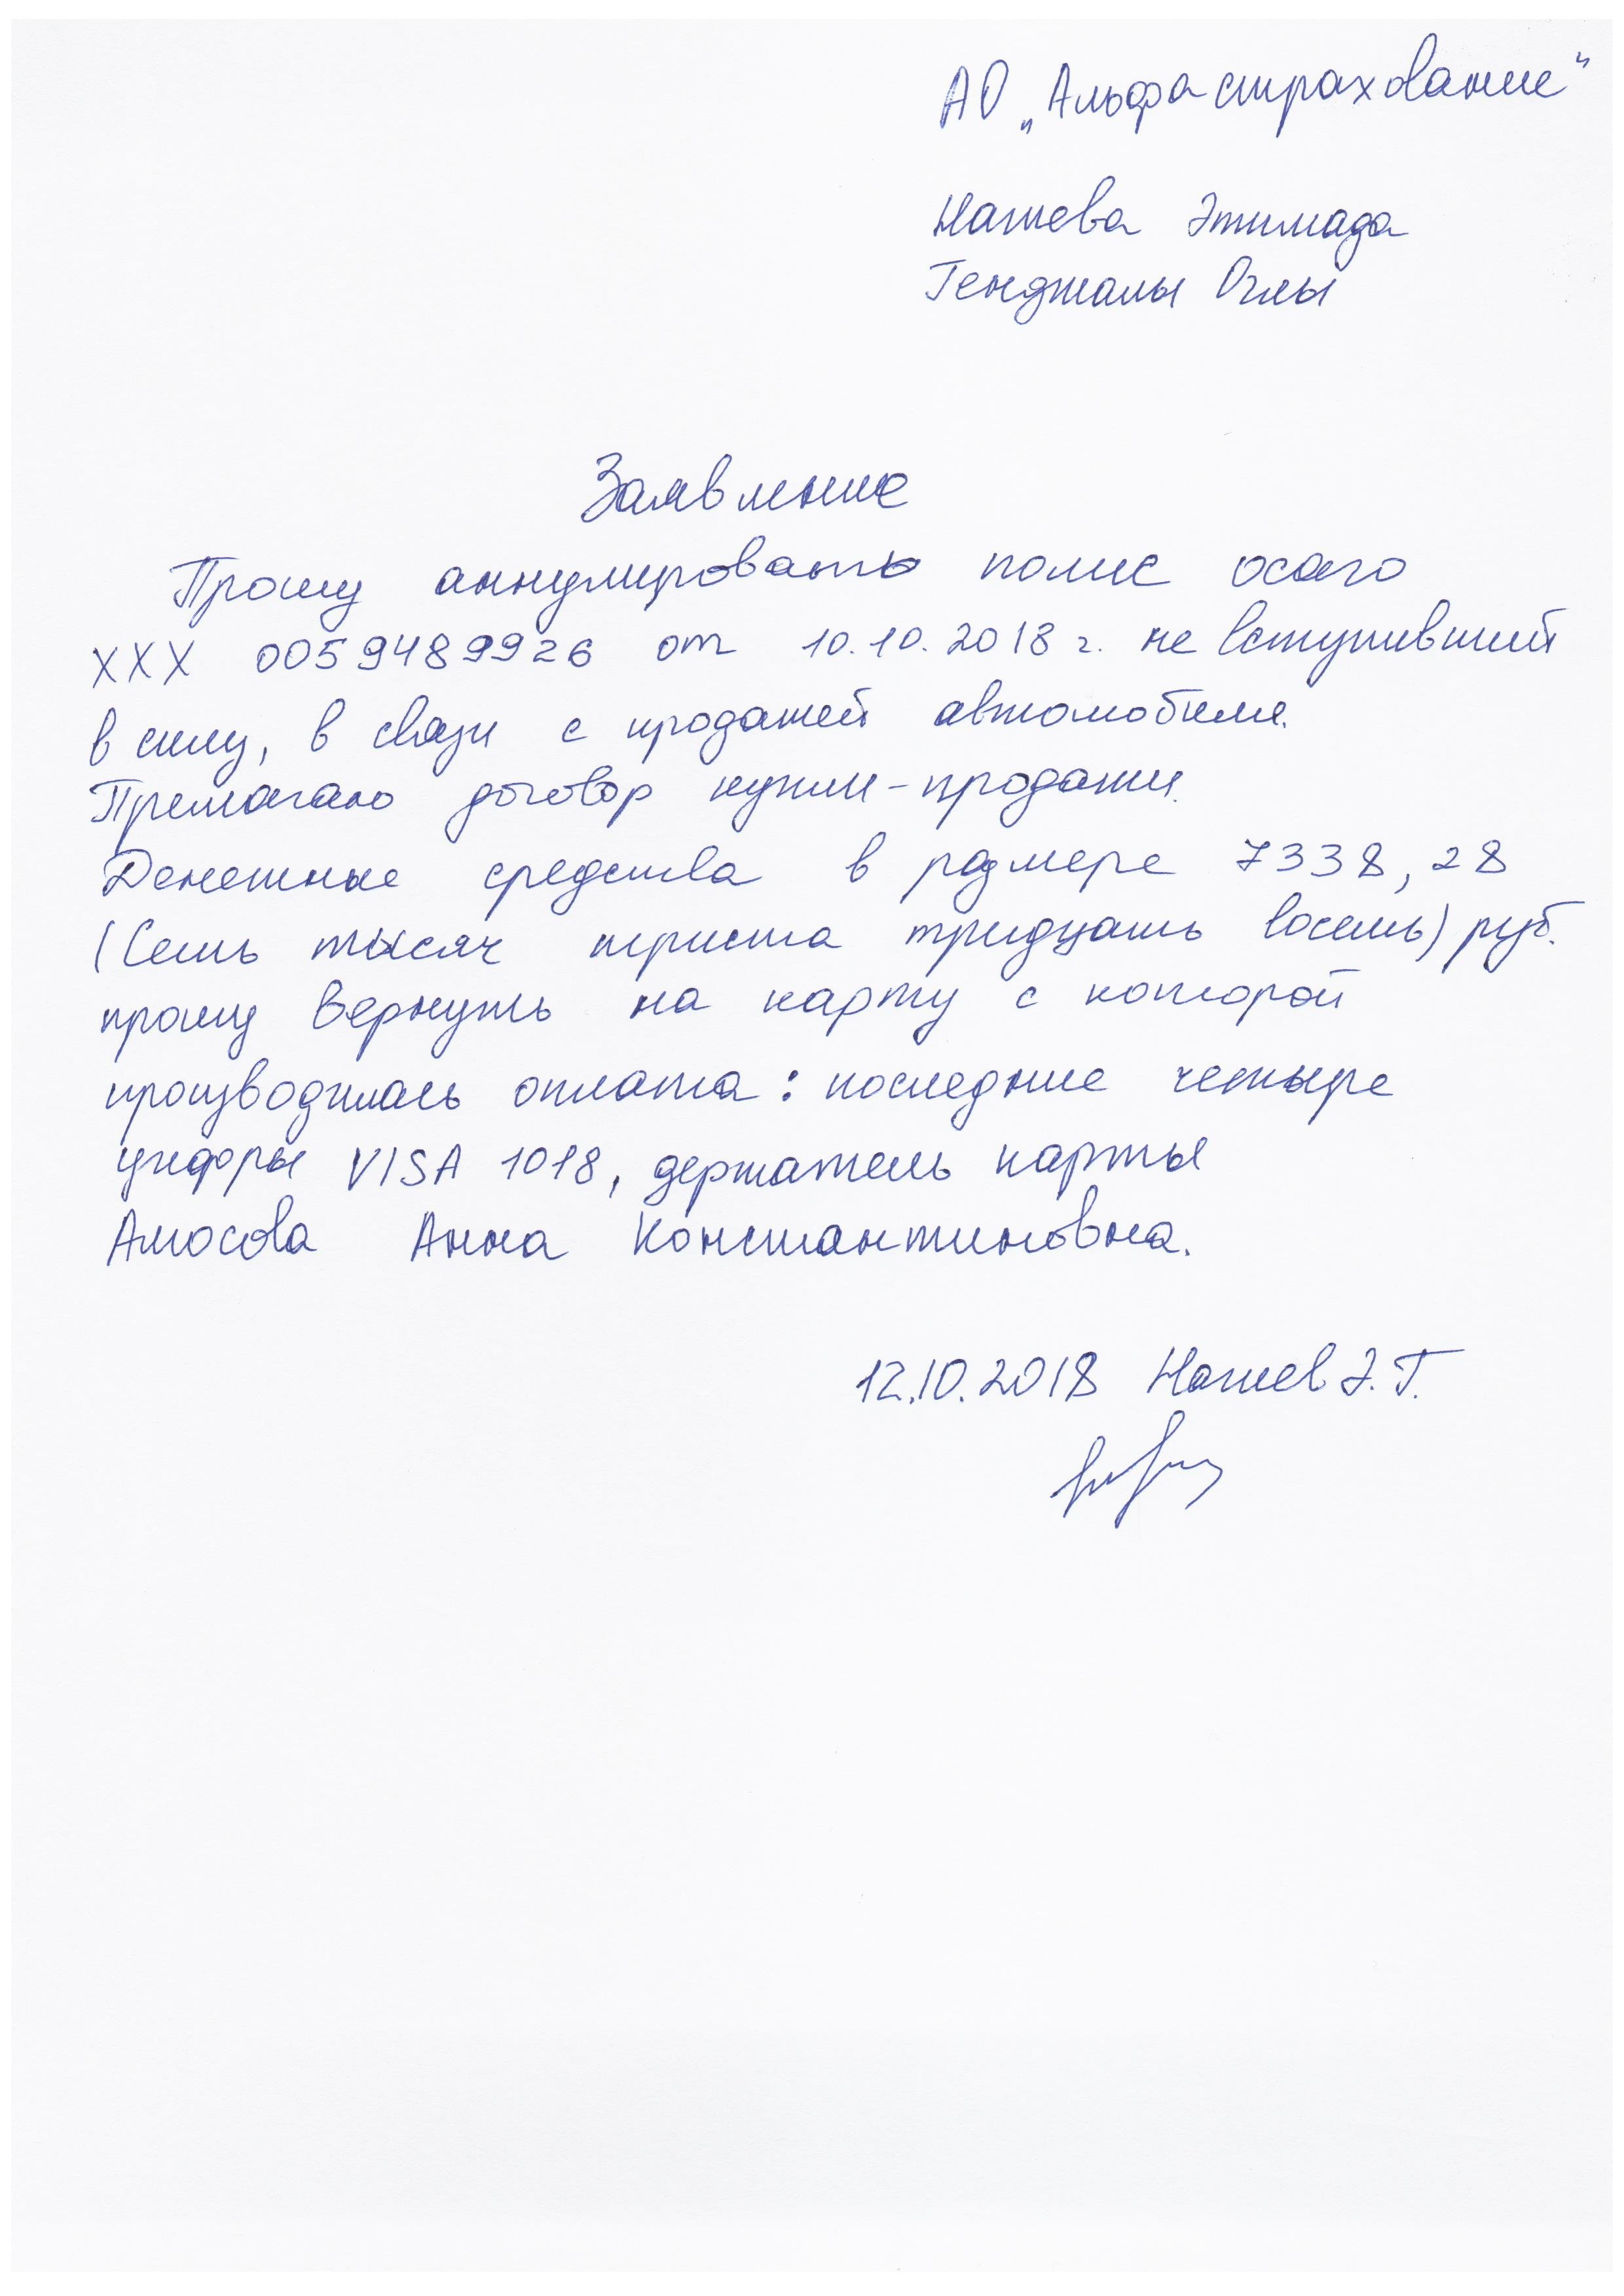 АО „Альфастрахование“
Нагиева Этимада
Генджалы Оглы
Заявление
Прошу аннулировать полис осаго
ХХХ 0059489926 от 10.10.2018 г. не вступивший
в силу, в связи с продажей автомобиля.
Прилагаю договор купли-продажи.
Денежные средства в размере 7338,28
(Семь тысяч триста тридцать восемь) руб.
прошу вернуть на карту с которой
производилась оплата: последние четыре
цифры VISA 1018, держатель карты
Амосова Анна Константиновна.
12.10.2018 Нагиев Э.Г.